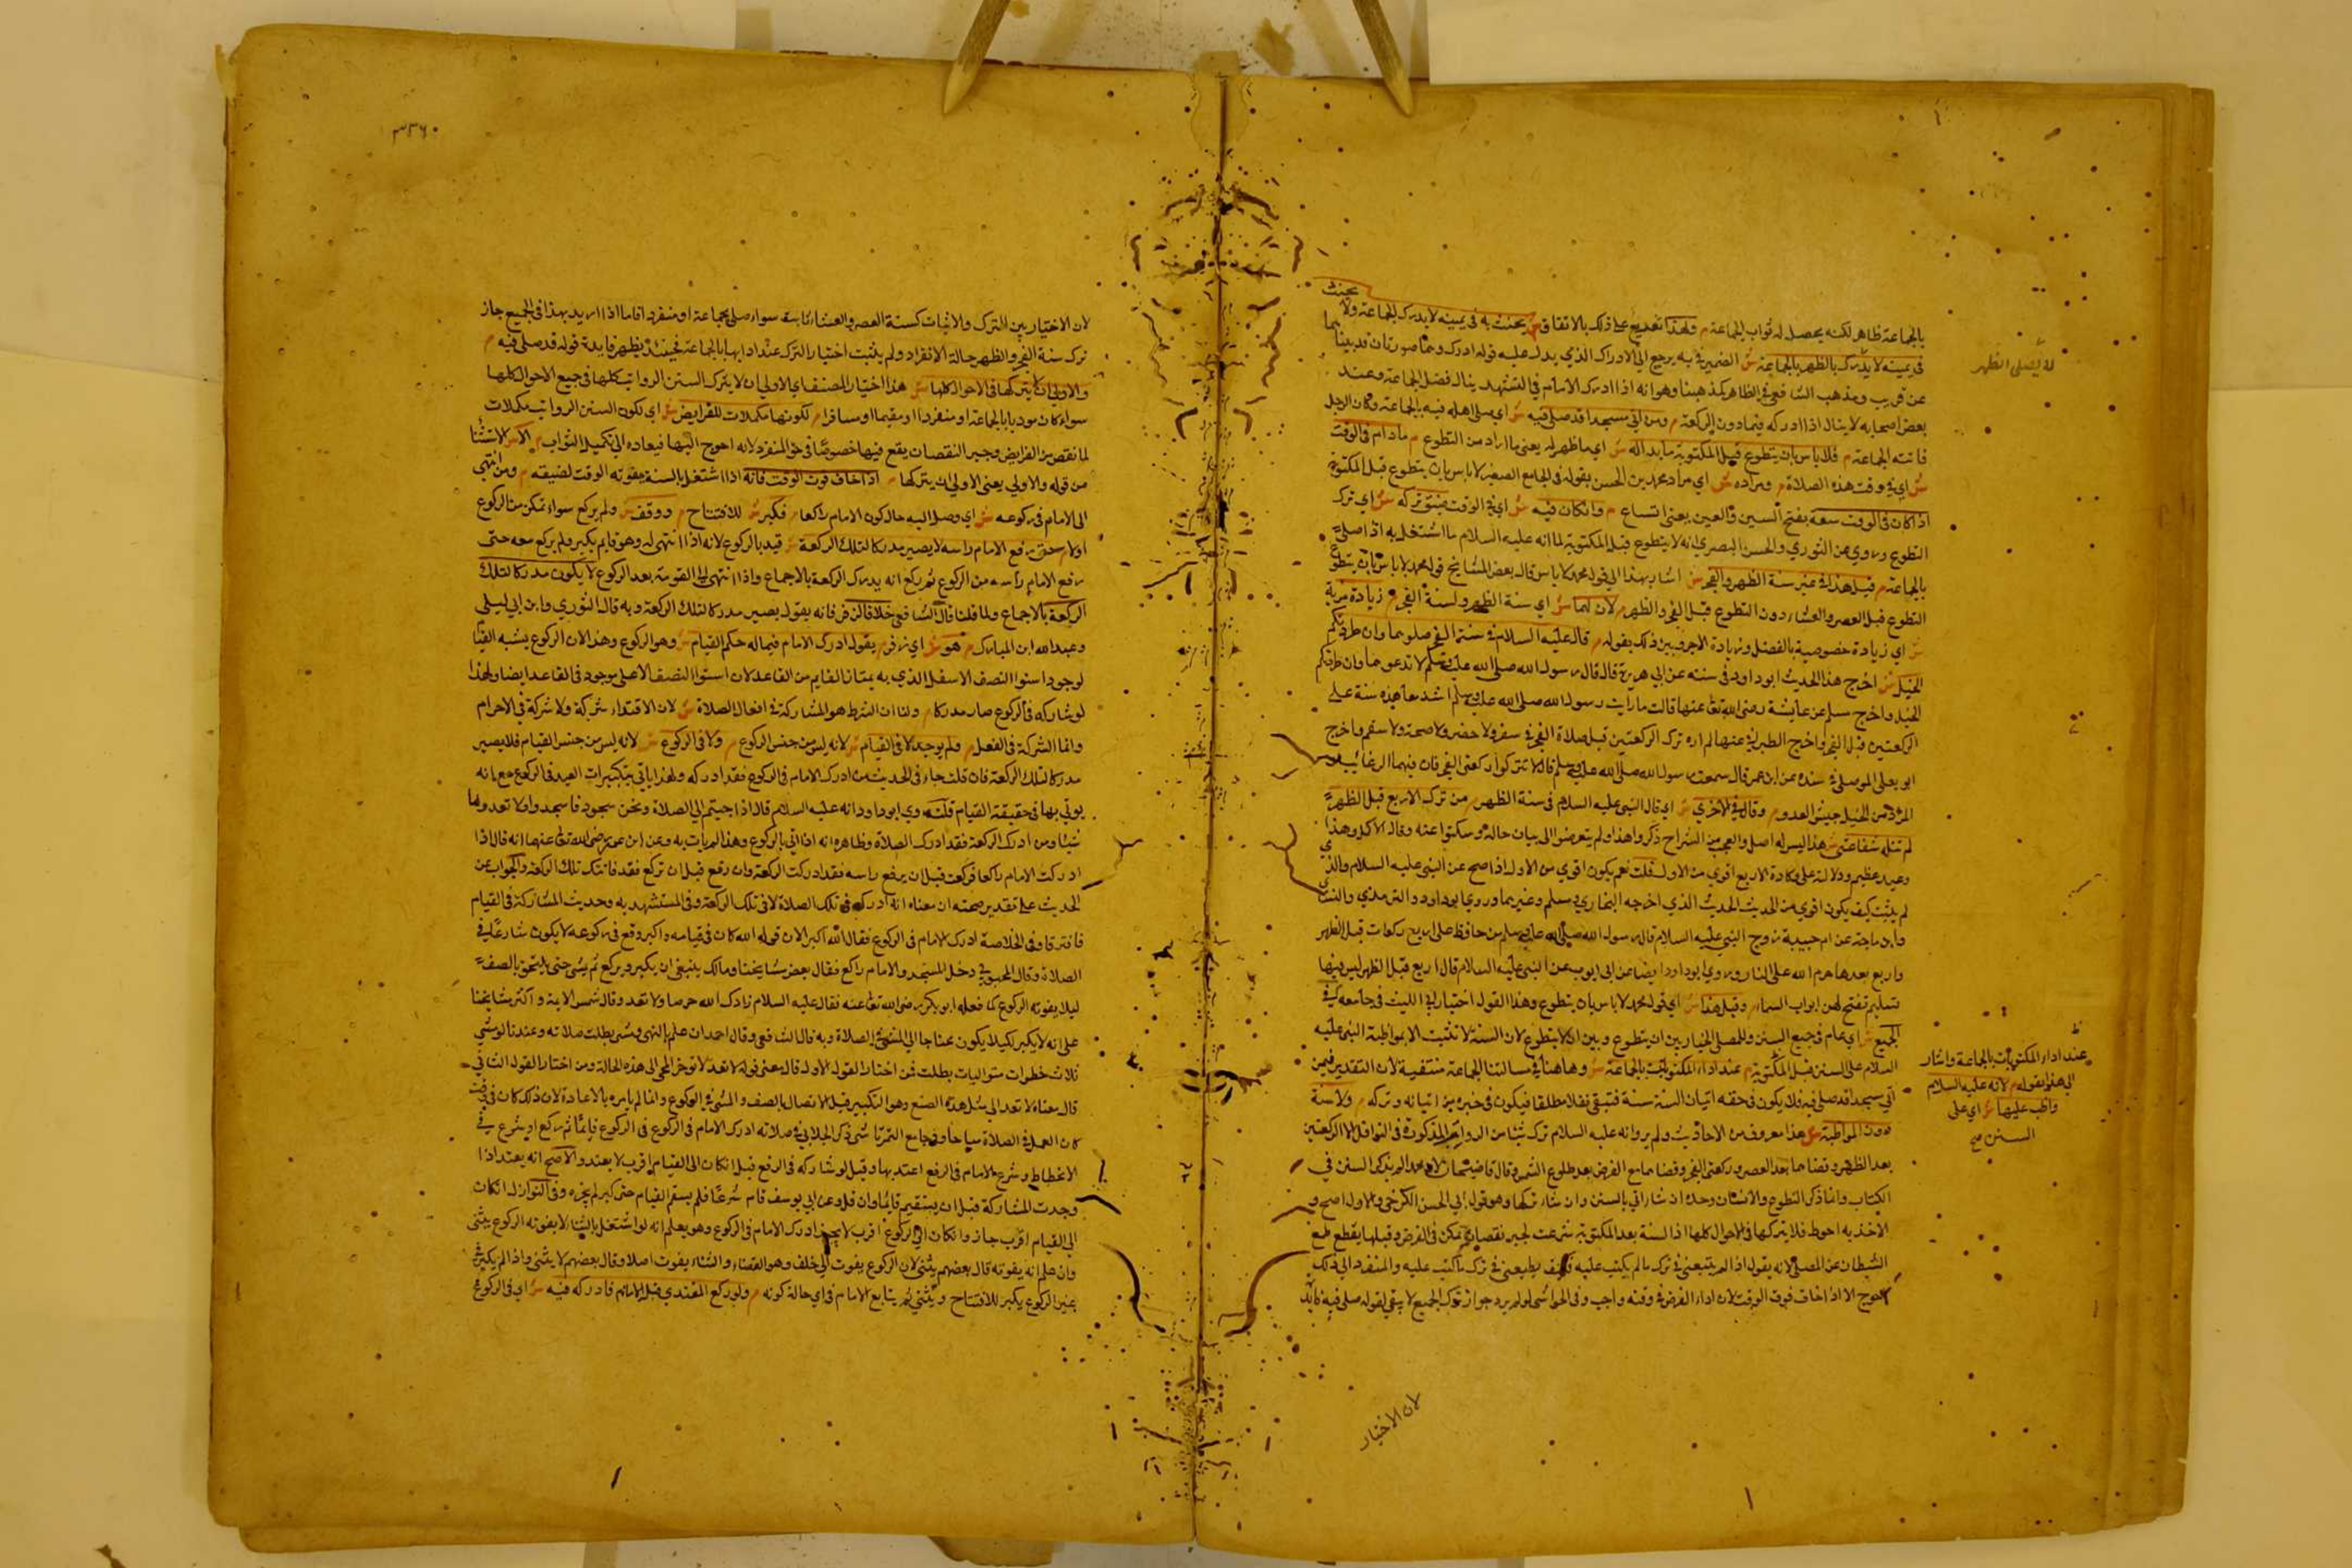 بالجماعة ظاهر لكنه يحصل له ثواب الجماعة م ولهذا تفريع على ذلك بالاتفاق يحنث به في يمينه لا يدرك الجماعة ولا يحنث
في يمينه لا يدرك الظهر بالجماعة ش الضمير في به يرجع الى الادراك الذي يدل عليه قوله ادرك وهما صورتان قد بيناهما
عن قريب ومذهب الشافعي في الظاهر كمذهبنا وهو انه اذا ادرك الامام في التشهد ينال فضل الجماعة وعند
بعض اصحابه لا ينال اذا ادركه فيما دون الركعة م ومن اتى مسجدا قد صلي فيه ش اي صلى اهله فيه بالجماعة وكان الرجل
فاتته الجماعة م فلا باس بان يتطوع قبل المكتوبة ما بدا له ش اي ما ظهر له يعني ما اراد من التطوع م ما دام في الوقت
ش اي في وقت هذه الصلاة م ومراده ش اي مراد محمد بن الحسن بقوله في الجامع الصغير لا باس بان يتطوع قبل المكتوبة
اذا كان في الوقت سعة بفتح السين والعين يعني اتساع م وان كان فيه ش اي في الوقت ضيق تركه ش اي ترك
التطوع وروي عن الثوري والحسن البصري انه لا يتطوع قبل المكتوبة لما انه عليه السلام ما اشتغل به اذا صلى
بالجماعة م قيل هذا في غير سنة الظهر والفجر ش اشار بهذا الى قول محمد لا باس قال بعض المشايخ قول محمد لا باس بان يتطوع
التطوع قبل العصر والعشاء دون التطوع قبل الفجر والظهر م لان لهما ش اي سنة الظهر ولسنة الفجر م زيادة مزية
ش اي زيادة خصوصية بالفضل وزيادة الاجر وبين ذلك بقوله م قال عليه السلام في سنة الفجر صلوهما وان طردتكم
الخيل ش اخرج هذا الحديث ابو داود في سننه عن ابي هريرة قال قال رسول الله صلى الله عليه وسلم لا تدعوهما وان طردتكم
الخيل واخرج مسلم عن عايشة رضي الله تعالى عنها قالت ما رايت رسول الله صلى الله عليه وسلم اشد معاهدة سنة على
الركعتين قبل الفجر واخرج الطبراني عنها لم اره ترك الركعتين قبل صلاة الفجر في سفر ولا حضر ولا صحة ولا سقم واخرج
ابو يعلى الموصلي في سنده عن ابن عمر قال سمعت رسول الله صلى الله عليه وسلم قال لا تتركوا ركعتي الفجر فان فيهما الرغائب
المراد من الخيل جيش العدو م وقال في الاخرى ش اي قال النبي عليه السلام في سنة الظهر م من ترك الاربع قبل الظهر
لم تنله شفاعتي ش هذا ليس له اصل والعجب من الشراح ذكروا هذا ولم يتعرضوا الى بيان حاله وسكتوا عنه وقال الاكمل وهذا
وعيد عظيم ودلالته على وكادة الاربع اقوى من الاول قلت نعم يكون اقوى من الاول اذا صح عن النبي عليه السلام والذي
لم يثبت كيف يكون اقوى من الحديث الذي اخرجه البخاري ومسلم وغيرهما وروى ابو داود والترمذي والنسائي
وابن ماجة عن ام حبيبة زوج النبي عليه السلام قال رسول الله صلى الله عليه وسلم من حافظ على اربع ركعات قبل الظهر
واربع بعدها حرم الله على النار وروى ابو داود ايضا عن ابي ايوب عن النبي عليه السلام قال اربع قبل الظهر ليس فيها
تسليم تفتح لهن ابواب السماء م وقيل هذا ش اي قول محمد لا باس بان يتطوع وهذا القول اختيار ابي الليث في جامعه م في
الجميع ش اي عام في جميع السنن وللمصلي الخيار بين ان يتطوع وبين ان لا يتطوع لان السنة لا تثبت الا بمواظبة النبي عليه
السلام على السنن قبل المكتوبة م عند اداء المكتوبات بالجماعة ش وها هنا في مسالتنا الجماعة منتفية لان التقدير فيمن
اتى مسجدا قد صلي فيه فلا يكون في حقه اتيان السنة سنة فتبقى نفلا مطلقا فيكون في خيرة من اتيانه وتركه م ولا سنة
دون المواظبة ش هذا معروف من الاحاديث ولم يروا انه عليه السلام ترك شيئا من الرواتب المذكورة في النوافل الا الركعتين
بعد الظهر وقضاهما بعد العصر وركعتي الفجر وقضاهما مع الفرض بعد طلوع الشمس وقال قاضيخان لان محمدا لم يذكر السنن في
الكتاب وانما ذكر التطوع والانسان وحده ان شاء اتى بالسنن وان شاء تركها وهو قول ابي الحسن الكرخي والاول اصح و
الاخذ به احوط فلا يتركها في الاحوال كلها اذ السنة بعد المكتوبة شرعت لجبر نقصان تمكن في الفرض وقبلها يقطع طمع
الشيطان عن المصلي لانه يقول اذا لم يتبعني في ترك ما لم يكتب عليه فكيف يطيعني في ترك ما كتب عليه والمنفرد الى ذلك
احوج الا اذا خاف فوت الوقت لان اداء الفرض في وقته واجب وفي الحواشي لو لم يرد جواز ترك الجميع لا يبقى لقوله صلي فيه فايدة
لا يصلي الظهر
عند اداء المكتوبات بالجماعة واشار
الى هذا بقوله م لانه عليه السلام
واظب عليها ش اي على
السنن صح
لان الاختيار
٣٣٦٠
لان الاختيار بين الترك والاتيان كسنة العصر والعشاء ثابت سواء صلى بجماعة او منفردا فاما اذا اريد بهذا في الجميع جاز
ترك سنة الفجر والظهر حالة الانفراد ولم يثبت اختيار الترك عند ادايها بالجماعة فحينئذ يظهر فايدة قوله قد صلي فيه م
والاولى ان لا يتركها في الاحوال كلها ش هذا اختيار المصنف اي الاولى ان لا يترك السنن الرواتب كلها في جميع الاحوال كلها
سواء كان موديا بالجماعة او منفردا او مقيما او مسافرا م لكونها مكملات للفرايض ش اي لكون السنن الرواتب مكملات
لما نقص من الفرايض وجبر النقصان يقع فيها خصوصا في حق المنفرد لانه احوج اليها فيعاده الى تكميل الثواب م الا ش الاستثناء
من قوله والاولى يعني الاولى ان يتركها م اذا خاف فوت الوقت فانه اذا اشتغل بالسنة يفوته الوقت لضيقه م ومن انتهى
الى الامام في ركوعه ش اي وصل اليه حال كون الامام راكعا م فكبر ش للافتتاح م ووقف ش ولم يركع سواء تمكن من الركوع
اولا م حتى رفع الامام راسه لا يصير مدركا لتلك الركعة ش قيد بالركوع لانه اذا انتهى له وهو قايم يكبر ولم يركع معه حتى
رفع الامام رأسه من الركوع ثم ركع انه يدرك الركعة بالاجماع واذا انتهى الى القومة بعد الركوع لا يكون مدركا لتلك
الركعة بالاجماع ولما قلنا قال الشافعي خلافا لزفر فانه يقول يصير مدركا لتلك الركعة وبه قال الثوري وابن ابي ليلى
وعبد الله ابن المبارك م هو ش اي زفر م يقول ادرك الامام فيما له حكم القيام ش وهو الركوع وهذا لان الركوع يشبه القيام
لوجود استوا النصف الاسفل الذي به يمتاز القايم من القاعد لان استوا النصف الاعلى موجود في القاعد ايضا ولهذا
لو شاركه في الركوع صار مدركا م ولنا ان الشرط هو المشاركة في افعال الصلاة ش لان الاقتداء شركة ولا شركة في الاحرام
وانما الشركة في الفعل م ولم يوجد لا في القيام ش لانه ليس من جنس الركوع م ولا في الركوع ش لانه ليس من جنس القيام فلا يصير
مدركا لتلك الركعة فان قلت جاء في الحديث من ادرك الامام في الركوع فقد ادركه ولهذا ياتي بتكبيرات العيد في الركوع مع انه
يوتى بها في حقيقة القيام قلت روى ابو داود انه عليه السلام قال اذا جيتم الى الصلاة ونحن سجود فاسجدوا ولا تعدوها
شيئا ومن ادرك الركعة فقد ادرك الصلاة وظاهره انه اذا اتى بالركوع وهذا لم يات به وعن ابن عمر رضي الله تعالى عنهما انه قال اذا
ادركت الامام راكعا فركعت قبل ان يرفع راسه فقد ادركت الركعة وان رفع قبل ان تركع فقد فاتتك تلك الركعة والجواب عن
الحديث على تقدير صحته ان معناه انه ادركه في تلك الصلاة لا في تلك الركعة وفي المستشهد به وحديث المشاركة في القيام
فافترقا وفي الخلاصة ادرك الامام في الركوع فقال الله اكبر الا ان قوله الله كان في قيامه واكبر وقع في ركوعه لا يكون شارعا في
الصلاة وقال المحبوبي دخل المسجد والامام راكع فقال بعض مشايخنا ومالك ينبغي ان يكبر ويركع ثم يمشي حتى يلتحق بالصف
ليلا يفوته الركوع كما فعله ابو بكرة رضي الله تعالى عنه فقال عليه السلام زادك الله حرصا ولا تعد وقال شمس الايمة واكثر مشايخنا
على انه لا يكبر لكيلا يكون محتاجا الى المشي في الصلاة وبه قال الشافعي وقال احمد ان علم بالنهي ومشى بطلت صلاته وعندنا لو مشى
ثلاث خطوات متواليات بطلت فمن اختار القول الاول قال معنى قوله لا تعد لا توخر المجي الى هذه الحالة ومن اختار القول الثاني
قال معناه لا تعد الى مثل هذا الصنع وهو التكبير قبل الاتصال بالصف والمشي في الركوع وانما لم يامره بالاعادة لان ذلك كان في وقت
كان العمل في الصلاة مباحا وفي جامع التمرتاشي ذكر الجلابي في صلاته ادرك الامام في الركوع في الركوع قايما ثم ركع او شرع في
الانحطاط وشرع الامام في الرفع اعتد بها وقيل لو شاركه في الرفع قبل ان كان الى القيام اقرب لا يعتد والاصح انه يعتد اذا
وجدت المشاركة قبل ان يستقيم قايما وان قل وعن ابي يوسف قام شرعا فلم يستقم القيام حتى كبر لم يجزه وفي النوازل ان كان
الى القيام اقرب جاز وان كان الى الركوع اقرب لا يجوز ادرك الامام في الركوع وهو يعلم انه لو اشتغل بالثنا لا يفوته الركوع يثني
وان علم انه يفوته قال بعضهم يثني لان الركوع يفوت الى خلف وهو القضاء والثناء يفوت اصلا وقال بعضهم لا يثني واذا لم يكبر في
عين الركوع يكبر للافتتاح ويثني ثم يتابع الامام في اي حالة كونه م ولو ركع المقتدي قبل الامام فادركه فيه ش اي في الركوع